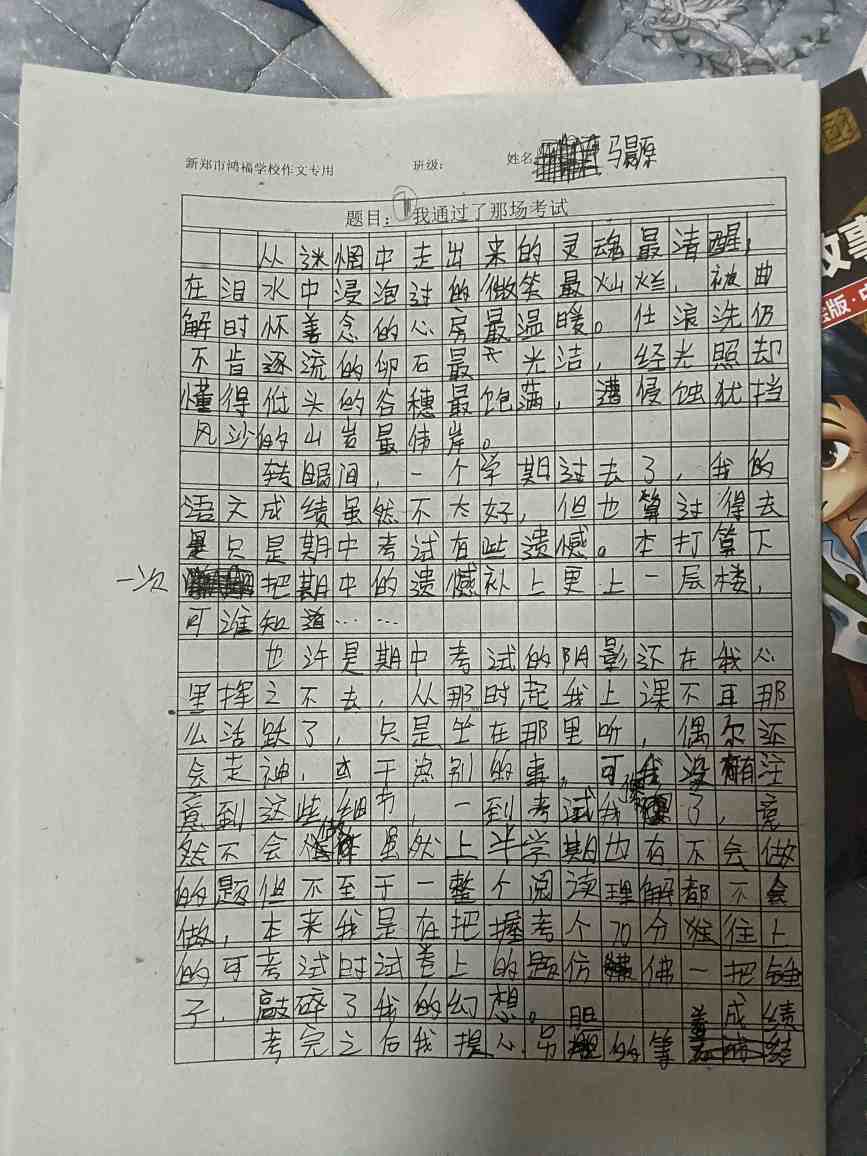 新郑市鸿福学校作文专用 班级: 姓名: 马
题目: 我通过了那场考试
从谜惘中走出来的灵魂最清醒,
在泪水中浸泡过的微笑最灿烂,被曲
解时怀善念的心房最温暖。任浪洗仍
不肯逐流的卵石最光洁,经光照却
懂得低头的谷穗最饱满,遭侵蚀犹挡
风沙的山岩最伟岸。
转眼间,一个学期过去了,我的
语文成绩虽然不太好,但也算过得去
只是期中考试有些遗憾。本打算下
一次把期中的遗憾补上更上一层楼,
可谁知道……
也许是期中考试的阴影还在我心
里挥之不去,从那时起我上课不再那
么活跃了,只是坐在那里听,偶尔还
会走神,或干点别的事,可我没有注
意到这些细节,一到考试我傻了,竟
然不会做虽然上半学期也有不会做
的题但不至于一整个阅读理解都不会
做,本来我是有把握考个70分往上
的可考试时试卷上的题仿佛一把锤
子,敲碎了我的幻想。
考完之后我提心吊胆的等着成绩
故事
版·中